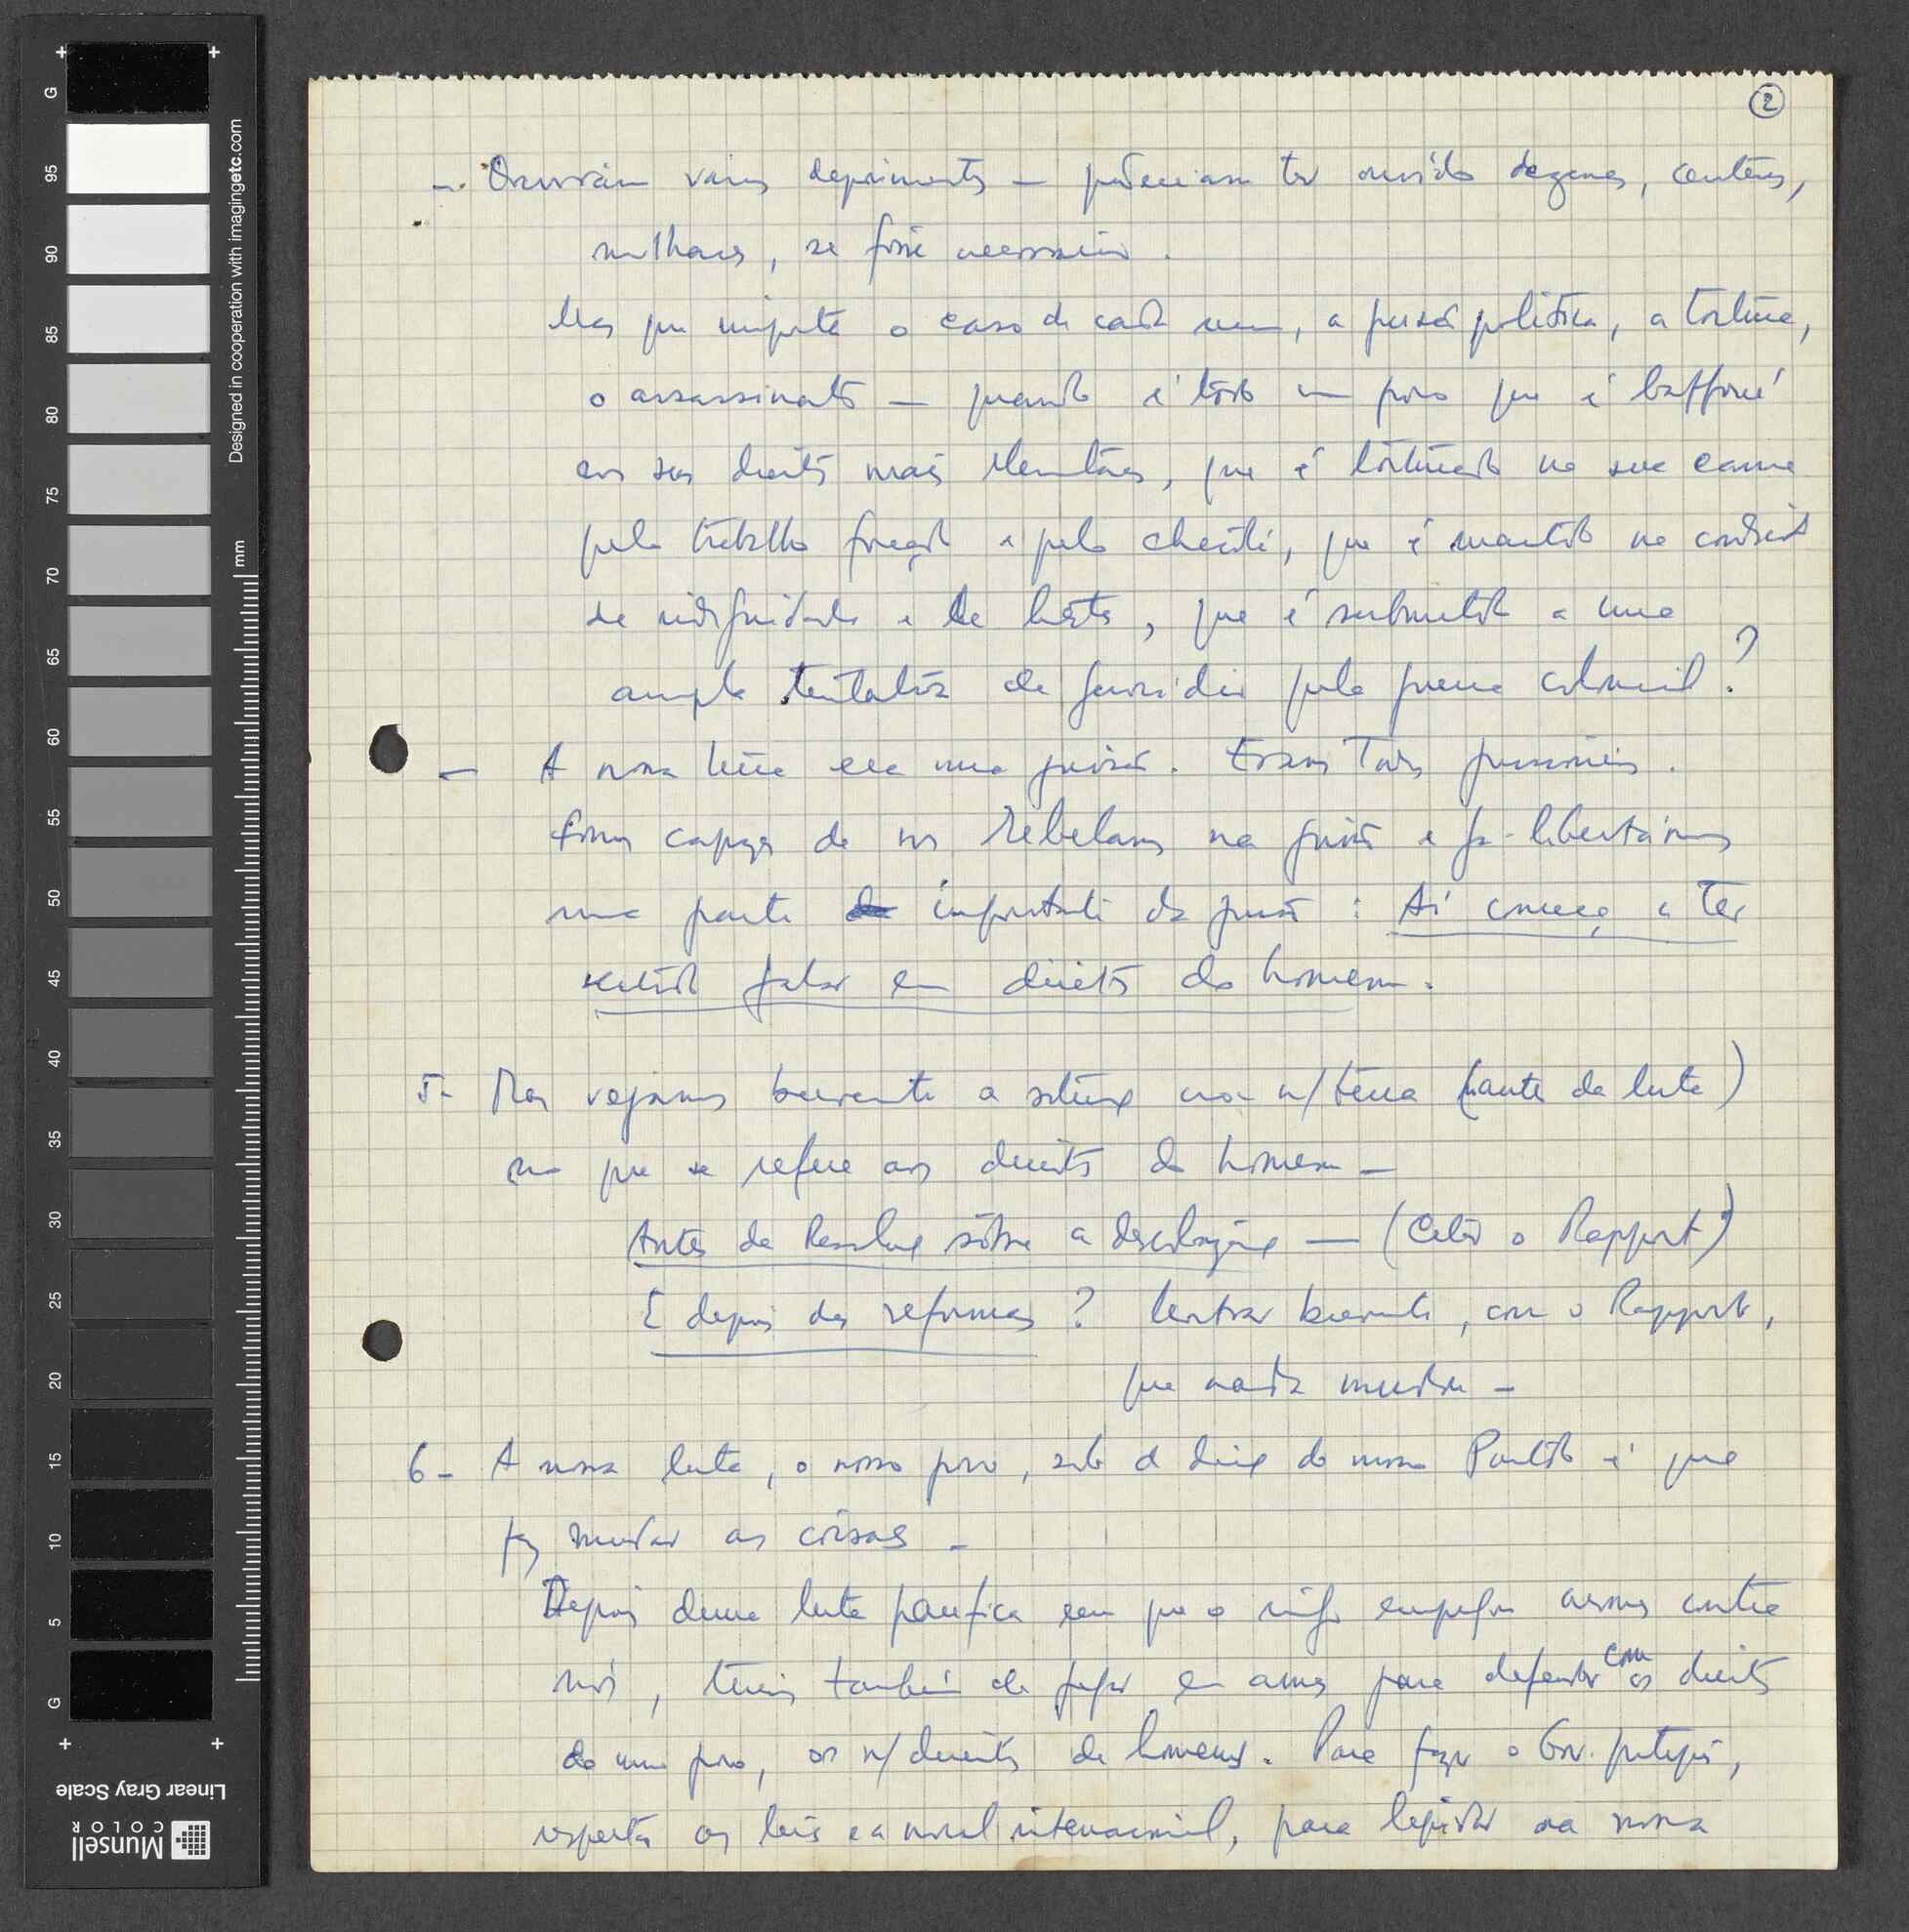 2
– Ouviram vários depoimentos – poderiam ter ouvido dezenas, centenas,
milhares, se fosse necessário.
Mas que importa o caso de cada um, a prisão política, a tortura,
o assassinato – quando é todo um povo que é baffoué
nos seus direitos mais elementares, que é torturado na sua carne
pelo trabalho forçado e pelo chicote, que é mantido na condição
de indignidade e de besta, que é submetido a uma
ampla tentativa de genocídio pela guerra colonial?
– A nossa terra era uma prisão. Éramos todos prisioneiros.
Fomos capazes de nos rebelarmos na prisão e já libertámos
uma parte importante da prisão: Aí começa a ter
sentido falar em direitos do homem.
5- Mas vejamos brevemente a situação na n/ terra (antes da luta)
no que se refere aos direitos do homem –
Antes da Resolução sôbre a descolonização – (Citar o Rapport)
E depois das reformas? Mostrar brevemente, com o Rapport,
que nada mudou –
6- A nossa luta, o nosso povo, sob a direcç do nosso Partido é que
fez mudar as coisas –
Depois duma luta pacífica em que o inigo empregou armas contra
nós, temos também de pegar em armas para defender com os direitos
do nosso povo, os n/ direitos de homens. Para fazer o Gov. português,
respeitar as leis e a moral internacional, para legislar na nossa
Designed in cooperation with imagingetc.com
mm
G
95
90
85
80
75
70
65
60
55
50
45
40
35
30
25
20
15
10
5
G
Linear Gray Scale
Munsell
COLOR